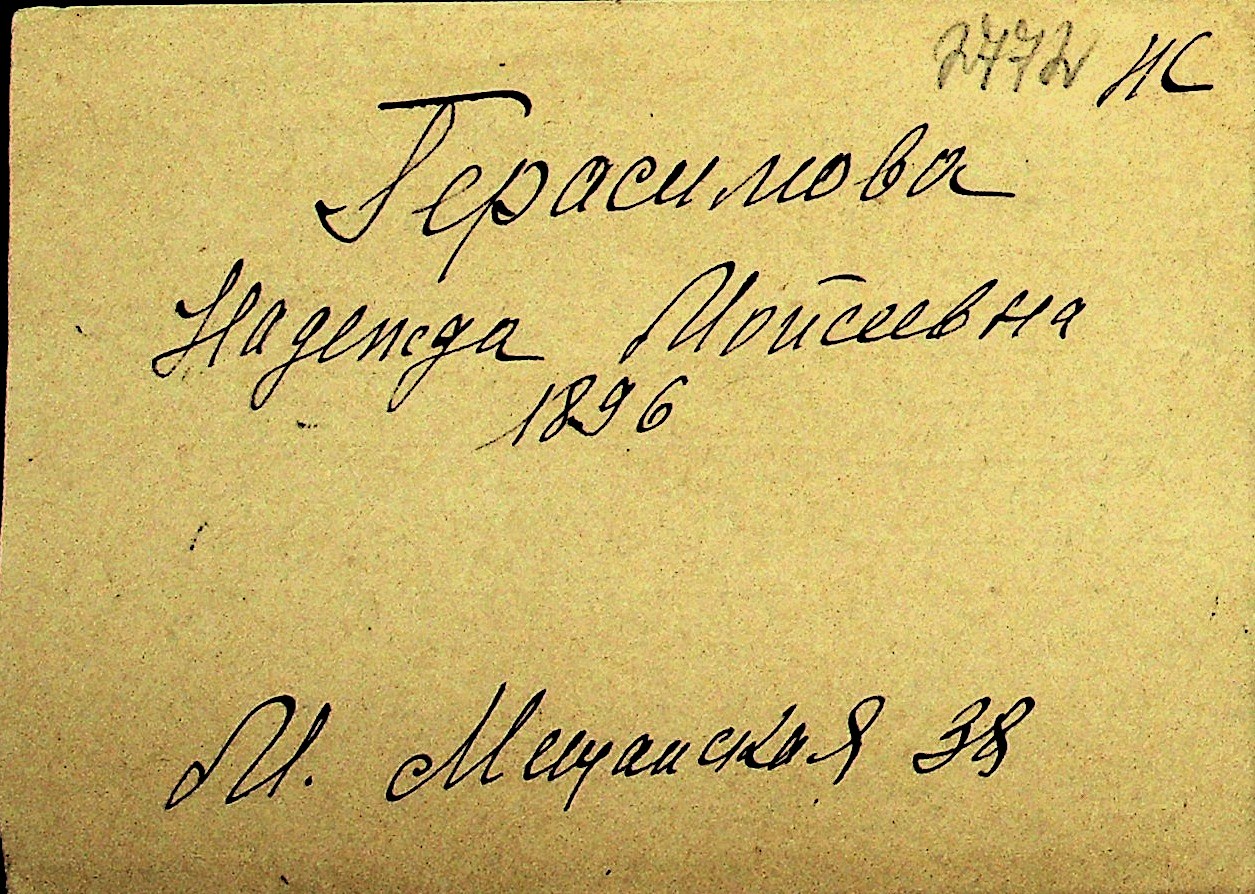 2772 НС
Герасимова
Надежда Моисеевна
1896
М. Мещанская 38